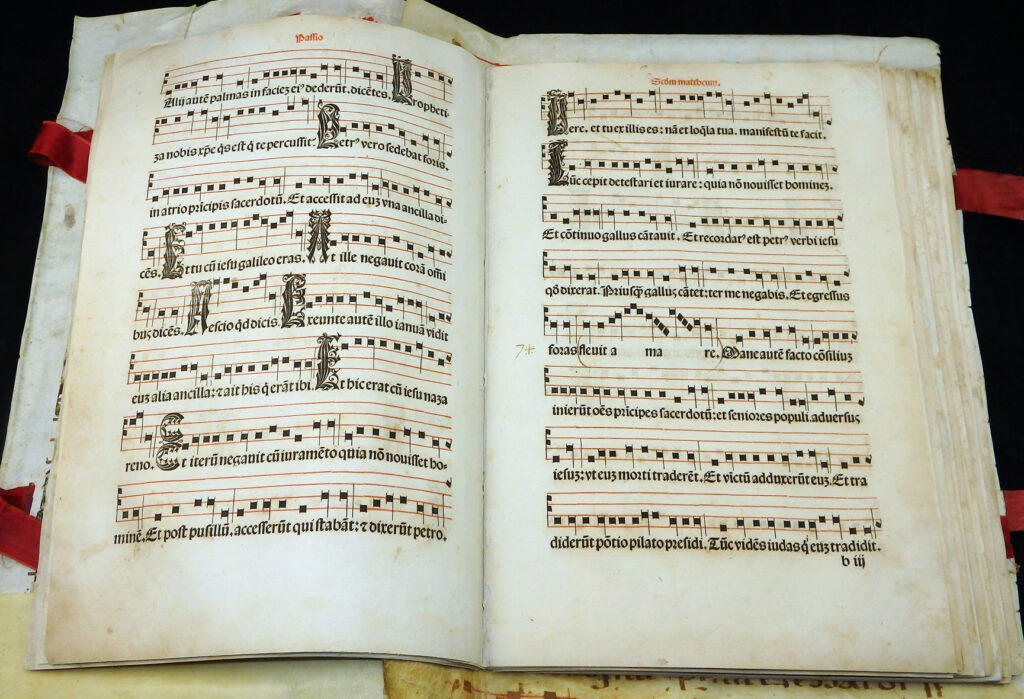 Passio
Alij autē palmas in faciez eiꝰ dederūt. dicētes. Propheti-
za nobis xp̄e q̄s est q̄ te percussit: Petrꝰ vero sedebat foris.
in atrio prīcipis sacerdotū. Et accessit ad euz vna ancilla di-
cēs. Et tu cū iesu galileo eras. At ille negauit corā om̄i
buꝫ dicēs. Nescio qd dicis. Exeunte autē illo ianuā vidit
euz alia ancilla: ⁊ ait his q̄ erāt ibi. Et hic erat cū iesu naza
reno. Et iterū negauit cū iuramēto quia nō nouisset ho-
minē. Et post pusillū. accesserūt qui stabāt: ⁊ dixerūt petro.
Scd̄m mattheum.
Uere. et tu ex illis es: nā et loq̄la tua. manifestū te facit.
Tūc cepit detestari et iurare: quia nō nouisset hominez.
Et cōtinuo gallus cātauit. Et recordatꝰ est petrꝰ verbi iesu
qd̄ dixerat. Priusq̄ gallus cātet: ter me negabis. Et egressus
foras fleuit a ma re. Mane autē facto cōsiliuz
inierūt oēs prīcipes sacerdotū: et seniores populi. aduersuꝫ
iesuz: vt euz morti traderēt. Et victū adduxerūt euz. Et tra
diderūt pōtio pilato presidi. Tūc vidēs iudas q̄ euz tradidit.
b iij